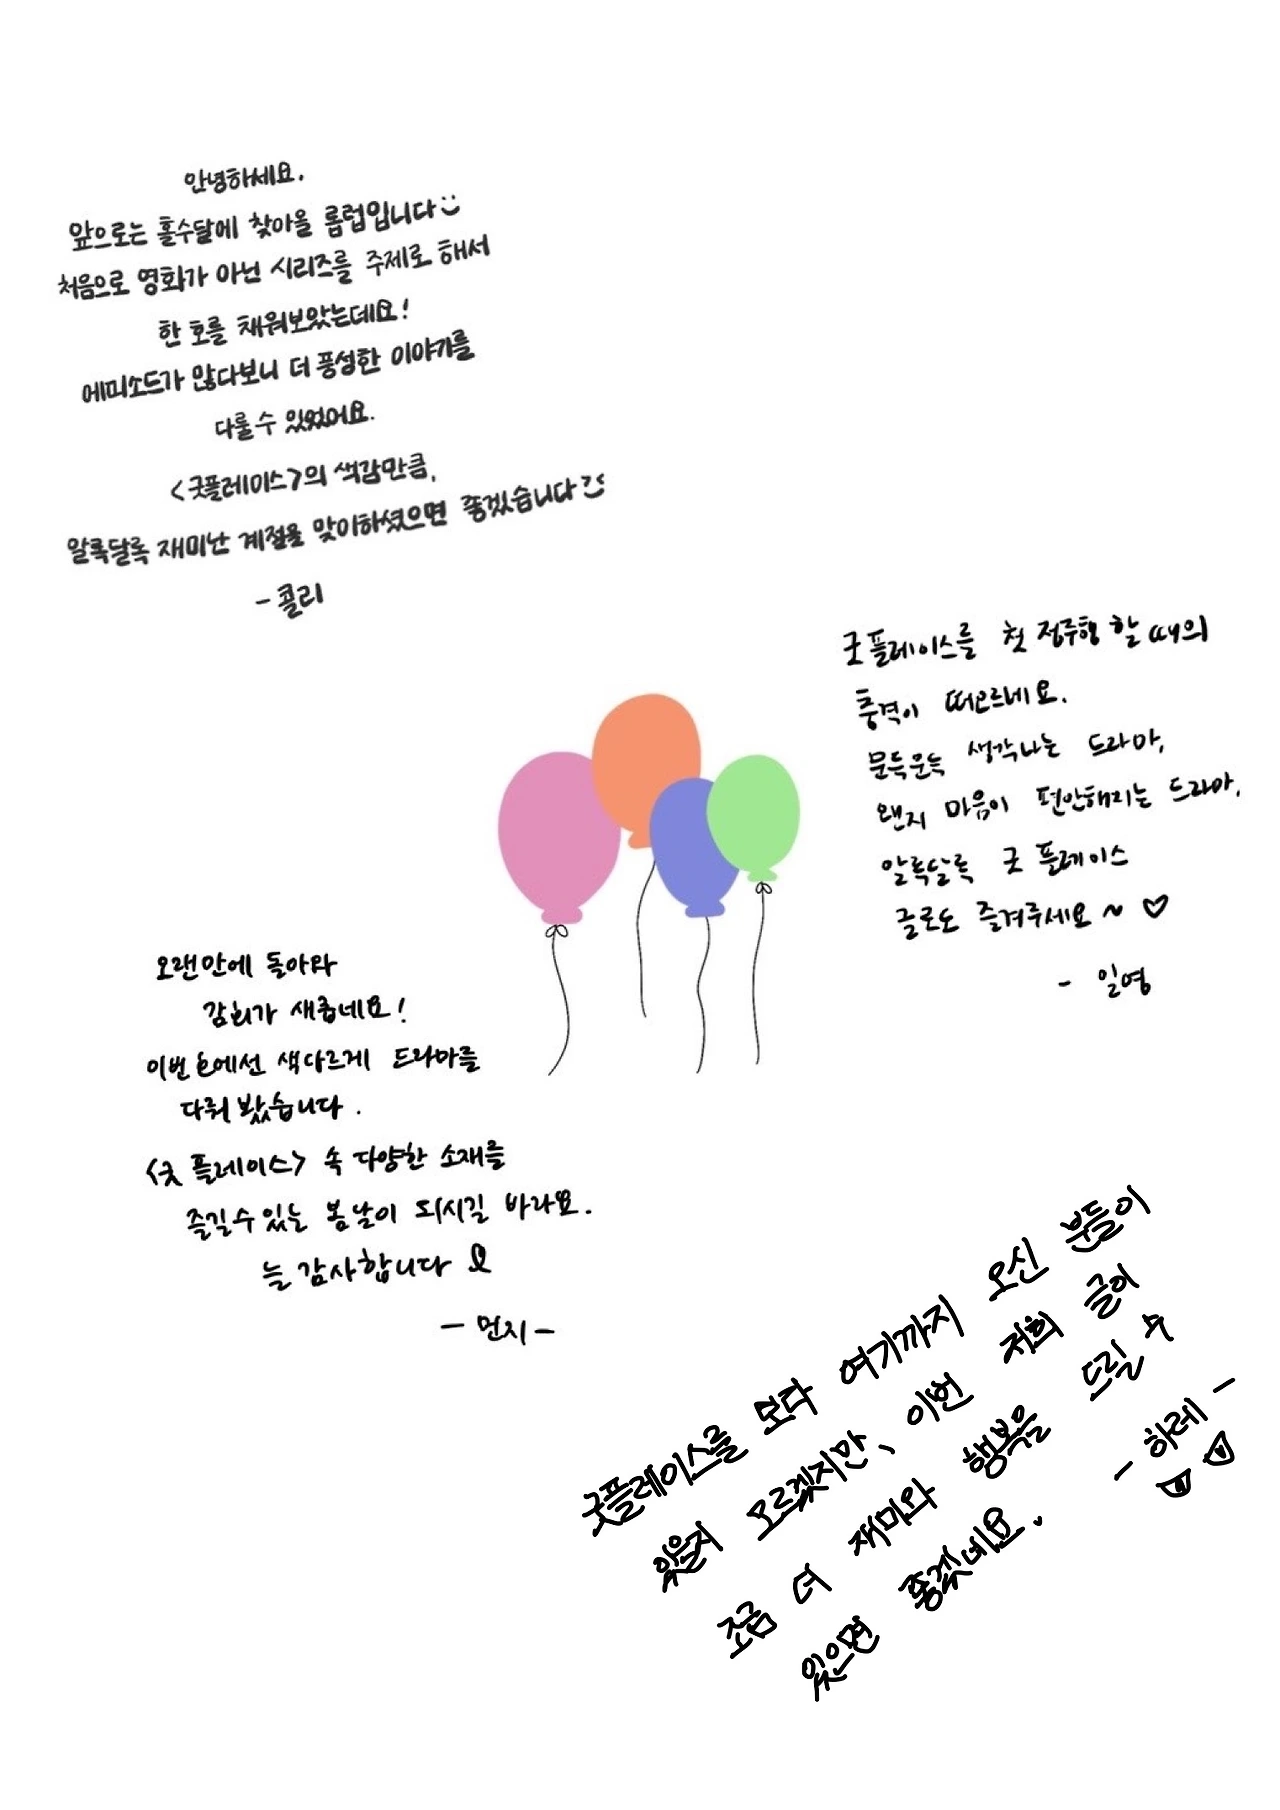 안녕하세요.
앞으로는 홀수달에 찾아올 롬럽입니다
처음으로 영화가 아닌 시리즈를 주제로 해서
한 호를 채워보았는데요!
에피소드가 많다보니 더 풍성한 이야기를
다룰 수 있었어요.
<굿플레이스>의 색감만큼,
알록달록 재미난 계절을 맞이하셨으면 좋겠습니다
- 콜리
굿플레이스를 첫 정주행 할 때의
충격이 떠오르네요.
문득문득 생각나는 드라마,
왠지 마음이 편안해지는 드라마,
알록달록 굿 플레이스
글로도 즐겨주세요 ~ ♡
- 일영
오랜만에 돌아와
감회가 새롭네요!
이번 호에선 색다르게 드라마를
다뤄 봤습니다.
<굿 플레이스> 속 다양한 소재를
즐길 수 있는 봄날이 되시길 바라요.
늘 감사합니다
- 먼지 -
굿플레이스를 보다 여기까지 오신 분들이
있을지 모르겠지만, 이번 저희 글이
조금 더 재미와 행복을 드릴 수
있으면 좋겠네요.
- 하레 -